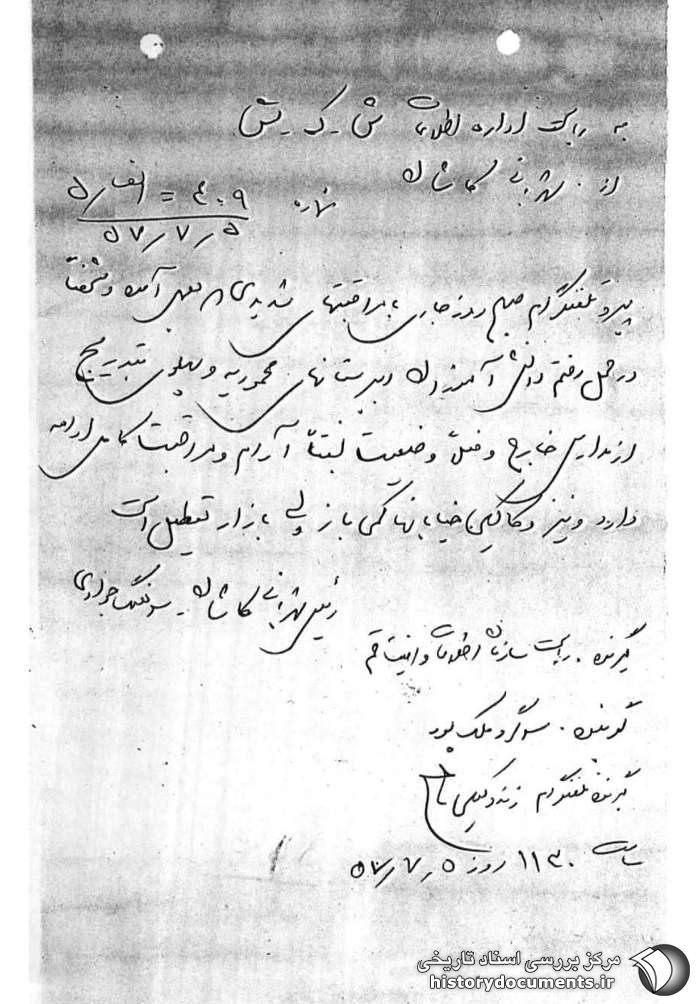 به ریاست اداره اطلاعات ش ک ش
از شهربانی کاشان شماره ۴۰۹ = الف ر ۵
۵۷٫۷٫۵
پیرو تلفنگرام صبح روز جاری با مراقبتهای شدیدی که بعمل آمده
در حال رفتن دانش آموزان دبیرستانهای محمودیه و پهلوی بتدریج
از مدارس خارج و فعلاً وضعیت نسبتاً آرام و مراقبت کامل ادامه
دارد و نیز دکاکین خیابانها کمی باز ولی بازار تعطیل است
رئیس شهربانی کاشان - سرهنگ جوادی
گیرنده - ریاست سازمان اطلاعات و امنیت قم
گوینده - سرگرد ملک پور
گیرنده تلفنگرام زند وکیلی
ساعت ۱۱۳۰ روز ۵٫۷٫۵۷
مرکز بررسی اسناد تاریخی
historydocuments.ir